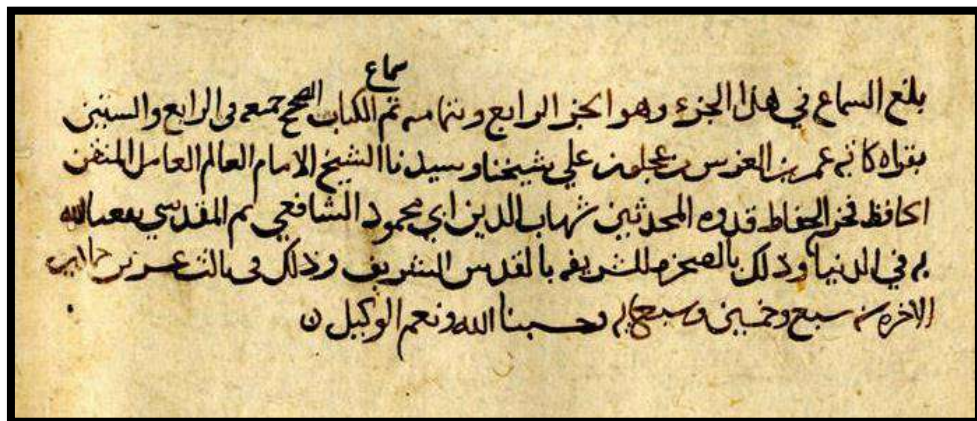 سماع
بلغ السماع في هذا الجزء وهو الجزء الرابع وبتمامه تم الكتاب الصحيح جمعه في الرابع والستين
بقراه كاتبه عمر بن العز بن علي شيخنا وسيدنا الشيخ الامام العالم العامل المتقن
الحافظ فخر الحفاظ قدوه المحدثين شهاب الدين ابي محمود الشافعي ثم المقدسي نفعنا الله
به في الدنيا وذلك بالصخره الشريفه بالقدس الشريف وذلك في ثالث عشرين جمادى
الاخره سنه سبع وخمسين وسبع مايه وحسبنا الله ونعم الوكيل